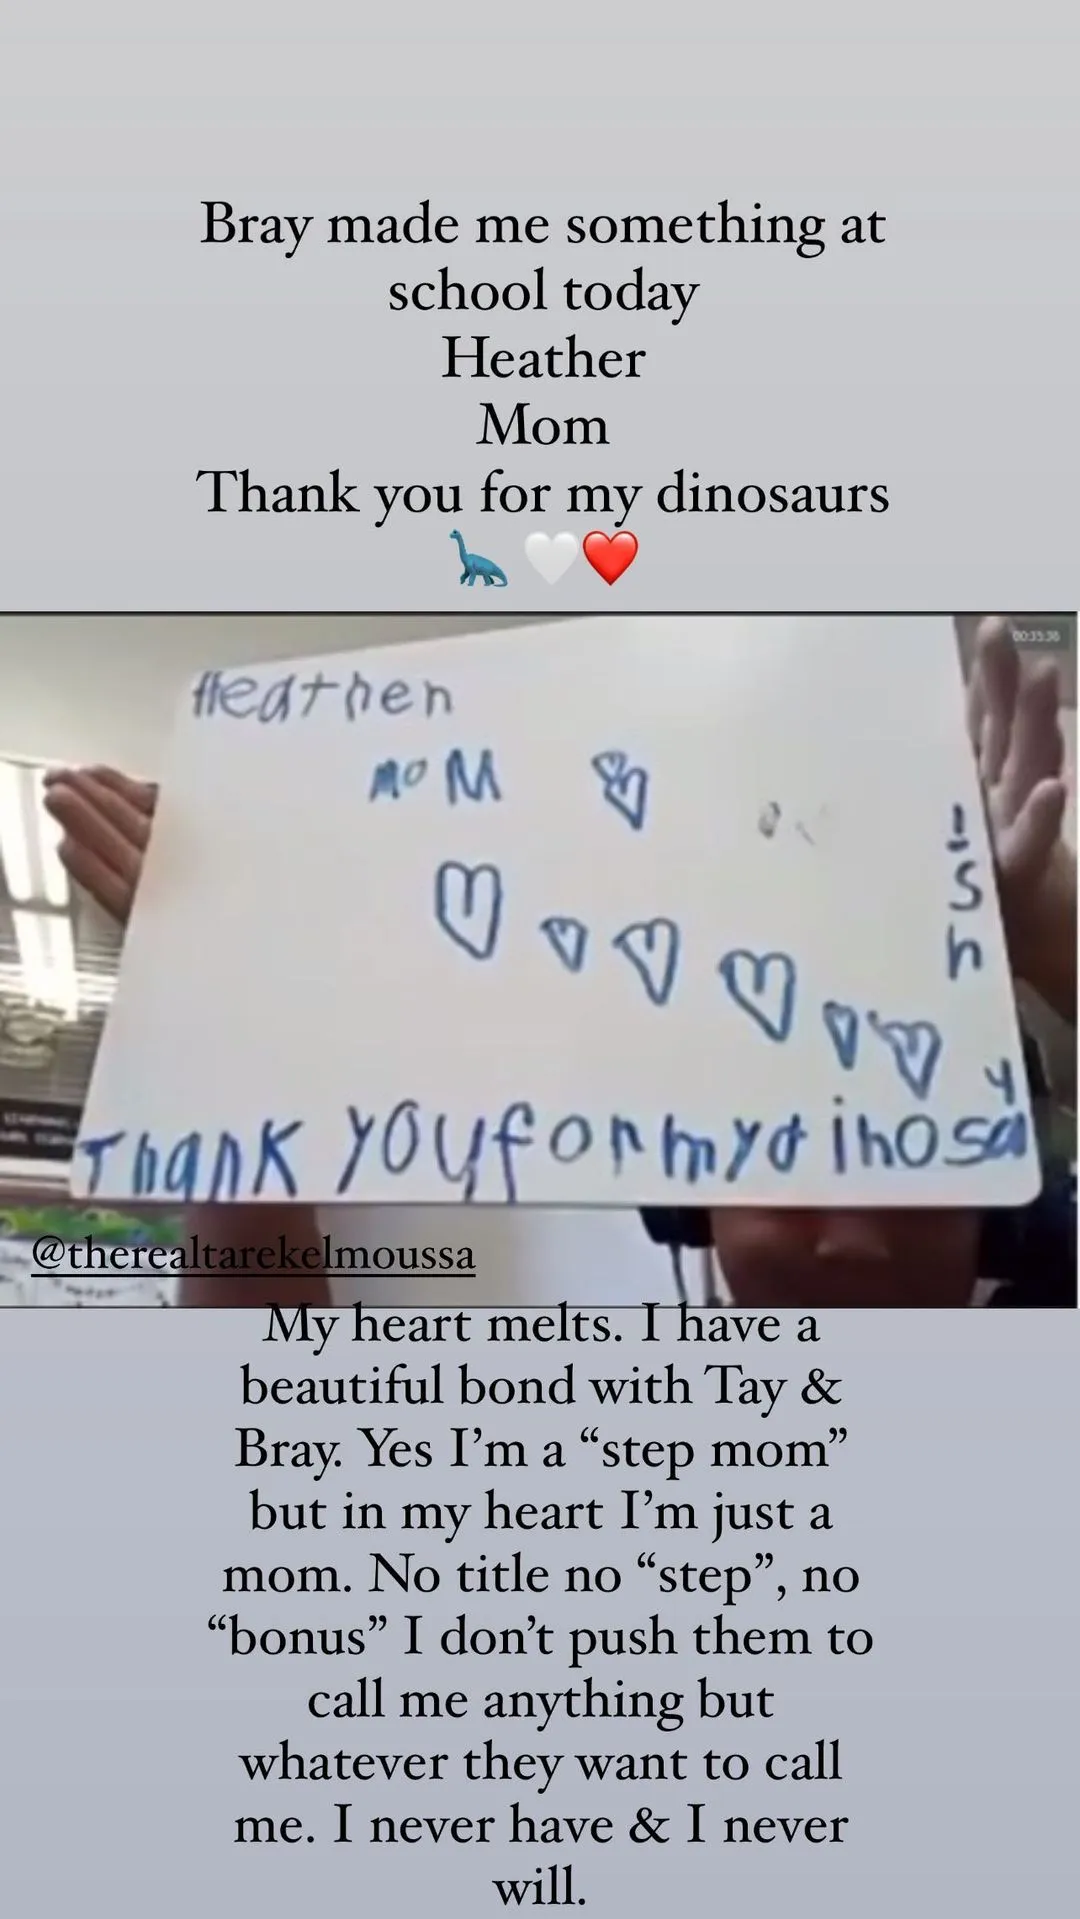 Bray made me something at
school today
Heather
Mom
Thank you for my dinosaurs
🦕 🤍❤️
00:35:36
Heather
MOM
Thank you for my dinosa
y
h
S
!
@therealtarekelmoussa
My heart melts. I have a
beautiful bond with Tay &
Bray. Yes I’m a “step mom”
but in my heart I’m just a
mom. No title no “step”, no
“bonus” I don’t push them to
call me anything but
whatever they want to call
me. I never have & I never
will.